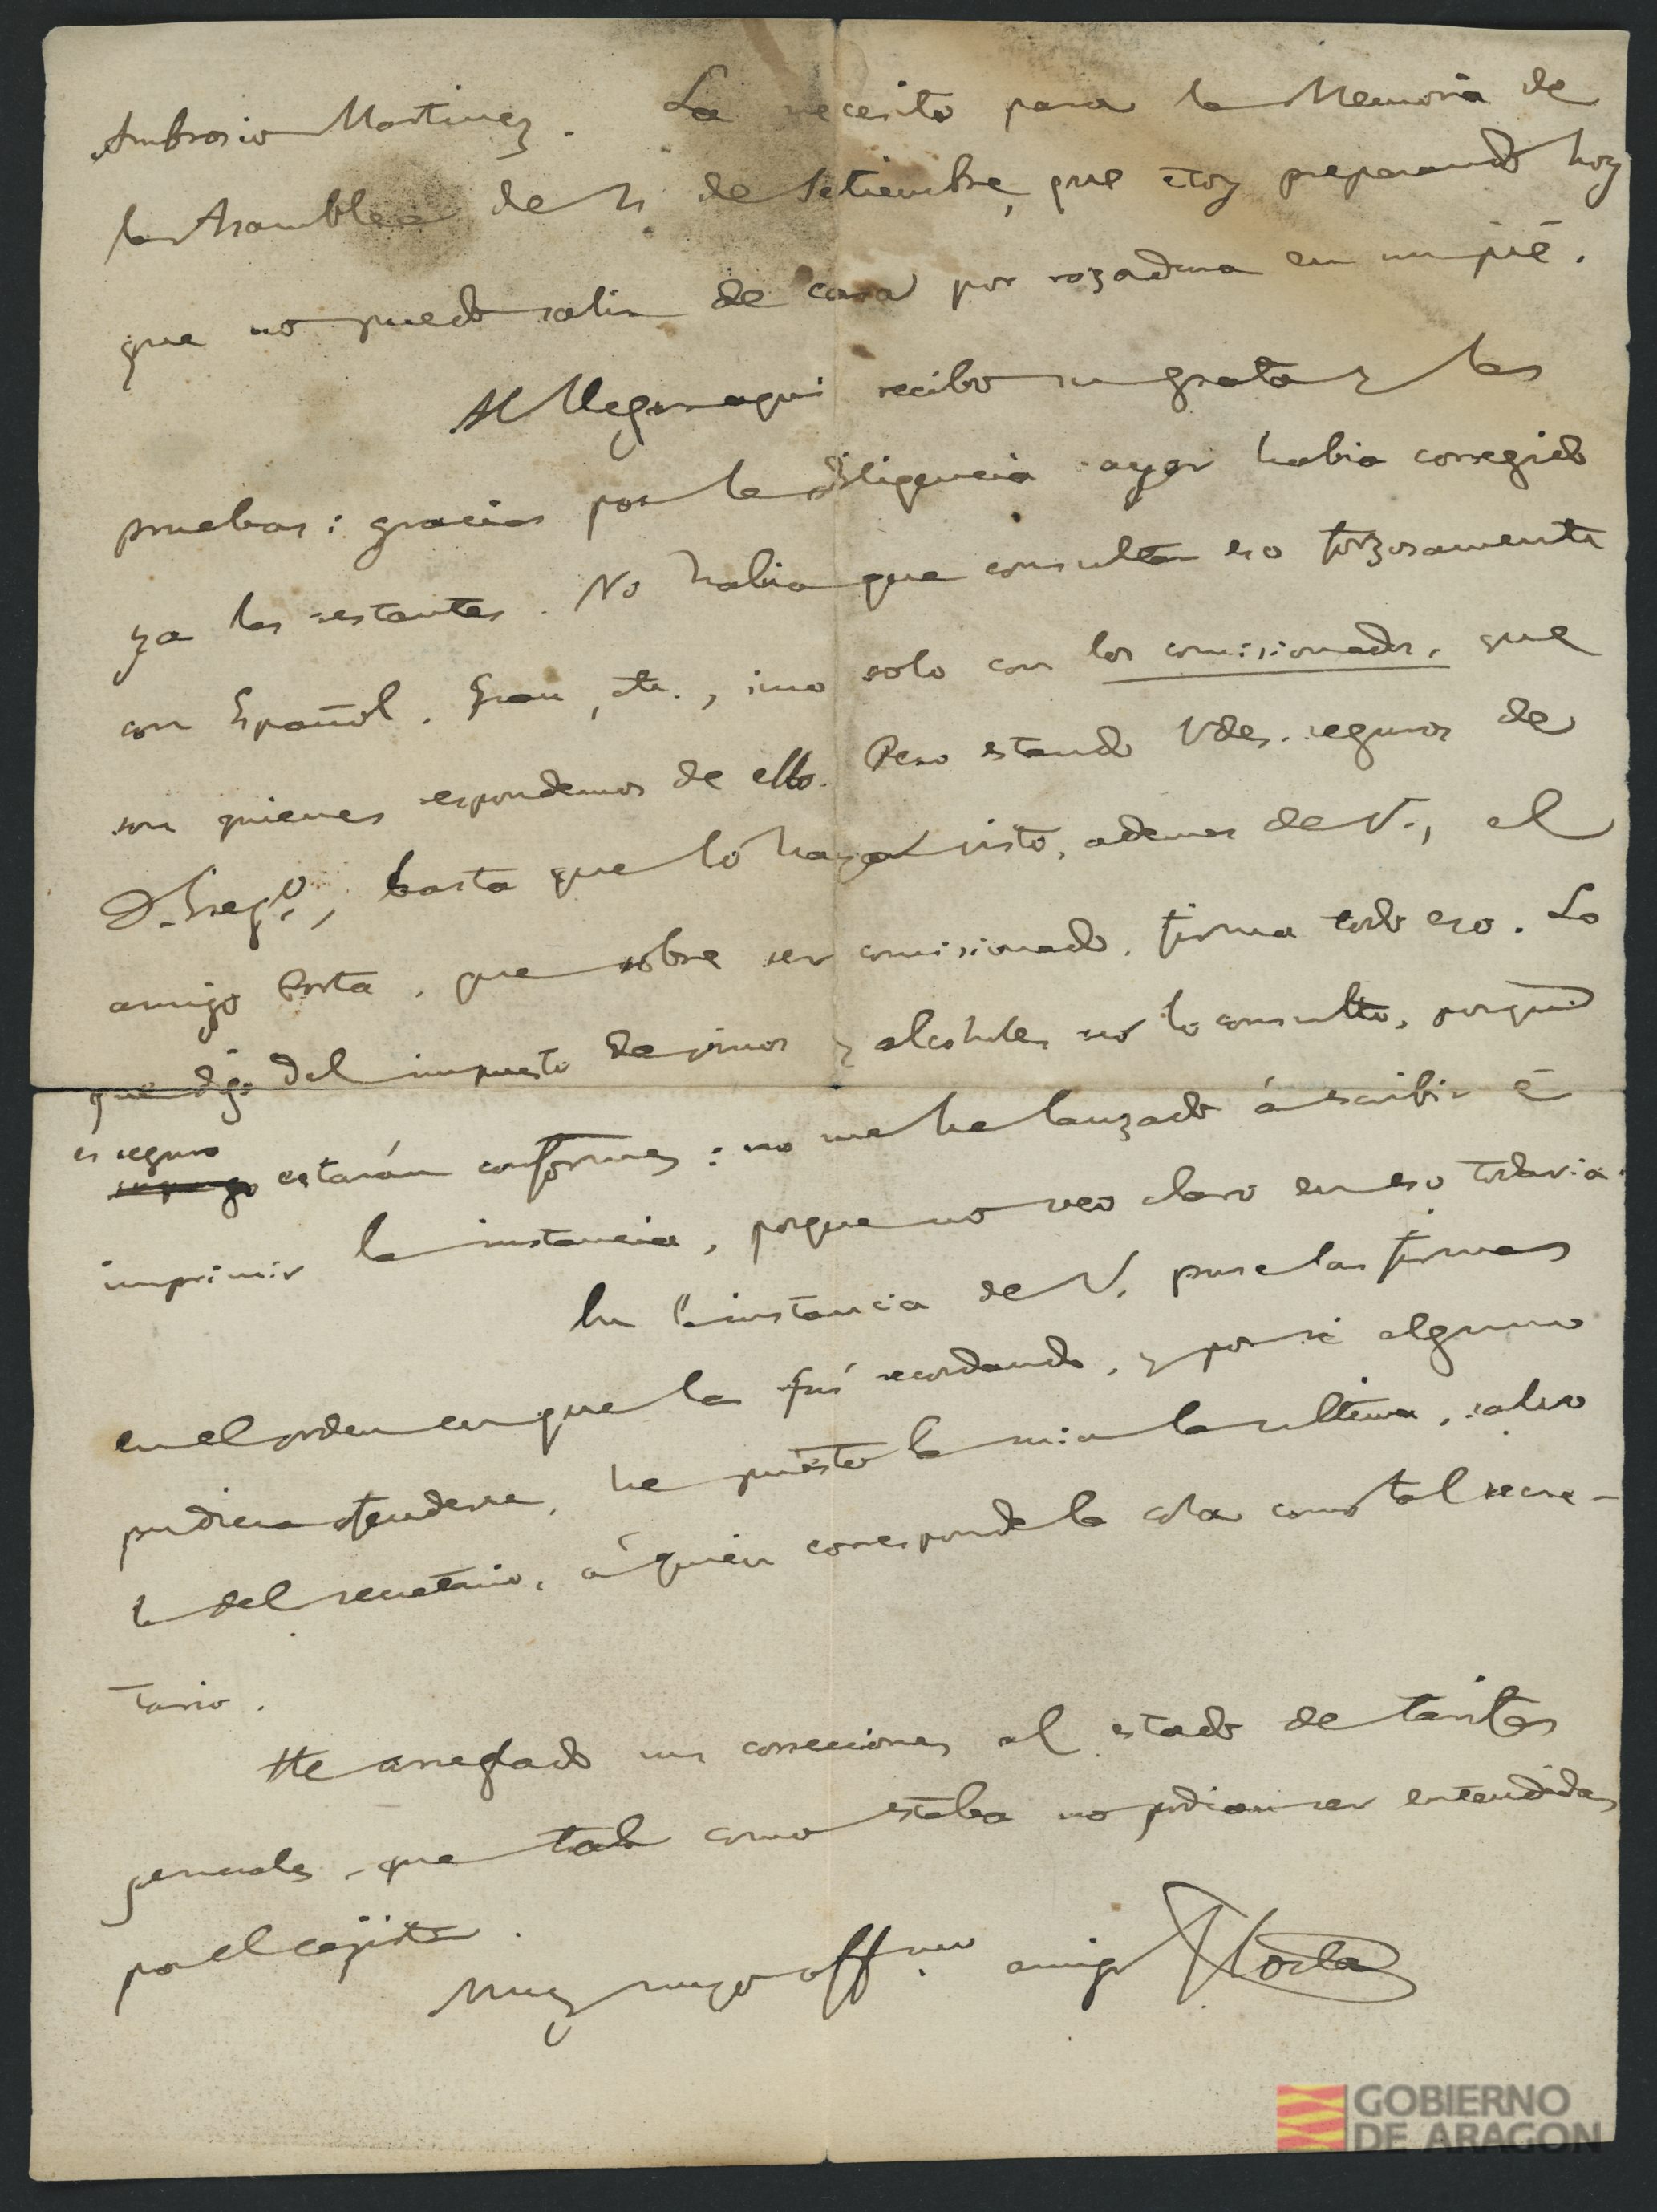 Ambrosio Martinez. La necesito para la Memoria de
la Asamblea de 7 de Setiembre, que estoy preparando hoy
que no puedo salir de casa por rozadura en un pié.
Al llegar aqui recibo su grata y las
pruebas: gracias por la diligencia ayer habia corregido
ya las restantes. No habia que consultar eso forzosamente
con Español, Grau, etc., sino solo con los comisionados, que
son quienes respondemos de ello. Pero estando Vdes. seguros de
D. Greg.º, basta que lo haya visto, ademas de V., el
amigo Costa, que sobre ser comisionado, firma todo eso. Lo
que digo del impuesto de vinos y alcoholes no lo consulto, porque
es seguro
estarán conformes: no me he lanzado á escribir é
imprimir la instancia, porque no veo claro en eso todavia.
En la instancia de V. puse las firmas
en el orden en que las fuí recordando, y por si alguno
pudiera ofenderse, he puesto la mia la ultima, salvo
la del secretario, á quien corresponde la cola como tal secre-
tario.
He arreglado sus correcciones al estado de tarifas
generales, que tal como estaba no podian ser entendidas
por el cajista.
Muy suyo aff.mo amigo JCosta
GOBIERNO
DE ARAGON